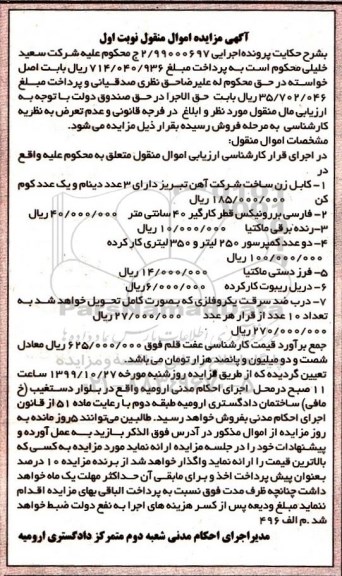 آگهی مزایده اموال منقول نوبت اول
بشرح حکایت پرونده اجرایی ۲/۹۹۰۰۰۶۹۷ ج محکوم علیه شرکت سعید
خلیلی محکوم است به پرداخت مبلغ ۷۱۴/۰۴۰/۹۳۶ ریال بابت اصل
خواسته در حق محکوم له علیرضا حق نظری صدقیانی و پرداخت مبلغ
۳۵/۷۰۲/۰۴۶ ریال بابت حق الاجرا در حق صندوق دولت با توجه به
ارزیابی مال منقول مورد نظر و ابلاغ در فرجه قانونی و عدم تعرض به نظریه
کارشناسی به مرحله فروش رسیده بقرار ذیل مزایده می شود.
مشخصات اموال منقول:
در اجرای قرار کارشناسی ارزیابی اموال منقول متعلق به محکوم علیه واقع
در
۱- کابل زن ساخت شرکت آهن تبریز دارای ۳ عدد دینام و یک عدد کوم
کن ۱۸۵/۰۰۰/۰۰۰ ریال
۲- فارسی بر رونیکس قطر کارگیر ۴۰ سانتی متر ۴۰/۰۰۰/۰۰۰ ریال
۳- رنده برقی ماکتیا ۱۰/۰۰۰/۰۰۰ ریال
۴- دو عدد کمپرسور ۲۵۰ لیتر و ۳۵۰ لیتری کار کرده
۱۰۰/۰۰۰/۰۰۰ ریال
۵- فرز دستی ماکتیا ۱۴/۰۰۰/۰۰۰ ریال
۶- دریل ریبوت کارکرده ۶/۰۰۰/۰۰۰ ریال
۷- درب ضد سرقت یکروفلزی که بصورت کامل تحویل خواهد شد به
تعداد ۱۰ عدد از قرار هر عدد ۲۷/۰۰۰/۰۰۰ ریال
۲۷۰/۰۰۰/۰۰۰ ریال
جمع برآورد قیمت کارشناسی عفت قلم فوق ۶۲۵/۰۰۰/۰۰۰ ریال معادل
شصت و دو میلیون و پانصد هزار تومان می باشد.
تعیین گردیده که از طریق مزایده روز شنبه مورخه ۱۳۹۹/۱۰/۲۷ ساعت
۱۱ صبح در محل اجرای احکام مدنی ارومیه واقع در بلوار دستغیب (خ
مافی) ساختمان دادگستری ارومیه طبقه دوم با رعایت ماده ۵۱ از قانون
اجرای احکام مدنی بفروش خواهد رسید. طالبین می توانند ۵ روز مانده به
روز مزایده از اموال مذکور در آدرس فوق الذکر بازدید به عمل آورده و
پیشنهادات خود را در جلسه مزایده ارائه نماید مورد مزایده به کسی که
بالاترین قیمت را ارائه نماید واگذار خواهد شد از برنده مزایده ۱۰ درصد
بعنوان پیش پرداخت اخذ و برای مابقی آن حداکثر مهلت یک ماه خواهد
داشت چنانچه ظرف مدت فوق نسبت به پرداخت الباقی بهای مزایده اقدام
ننماید مبلغ ودیعه پس از کسر هزینه های اجرا به نفع دولت ضبط خواهد
شد .م الف ۴۹۶
مدیر اجرای احکام مدنی شعبه دوم متمرکز دادگستری ارومیه